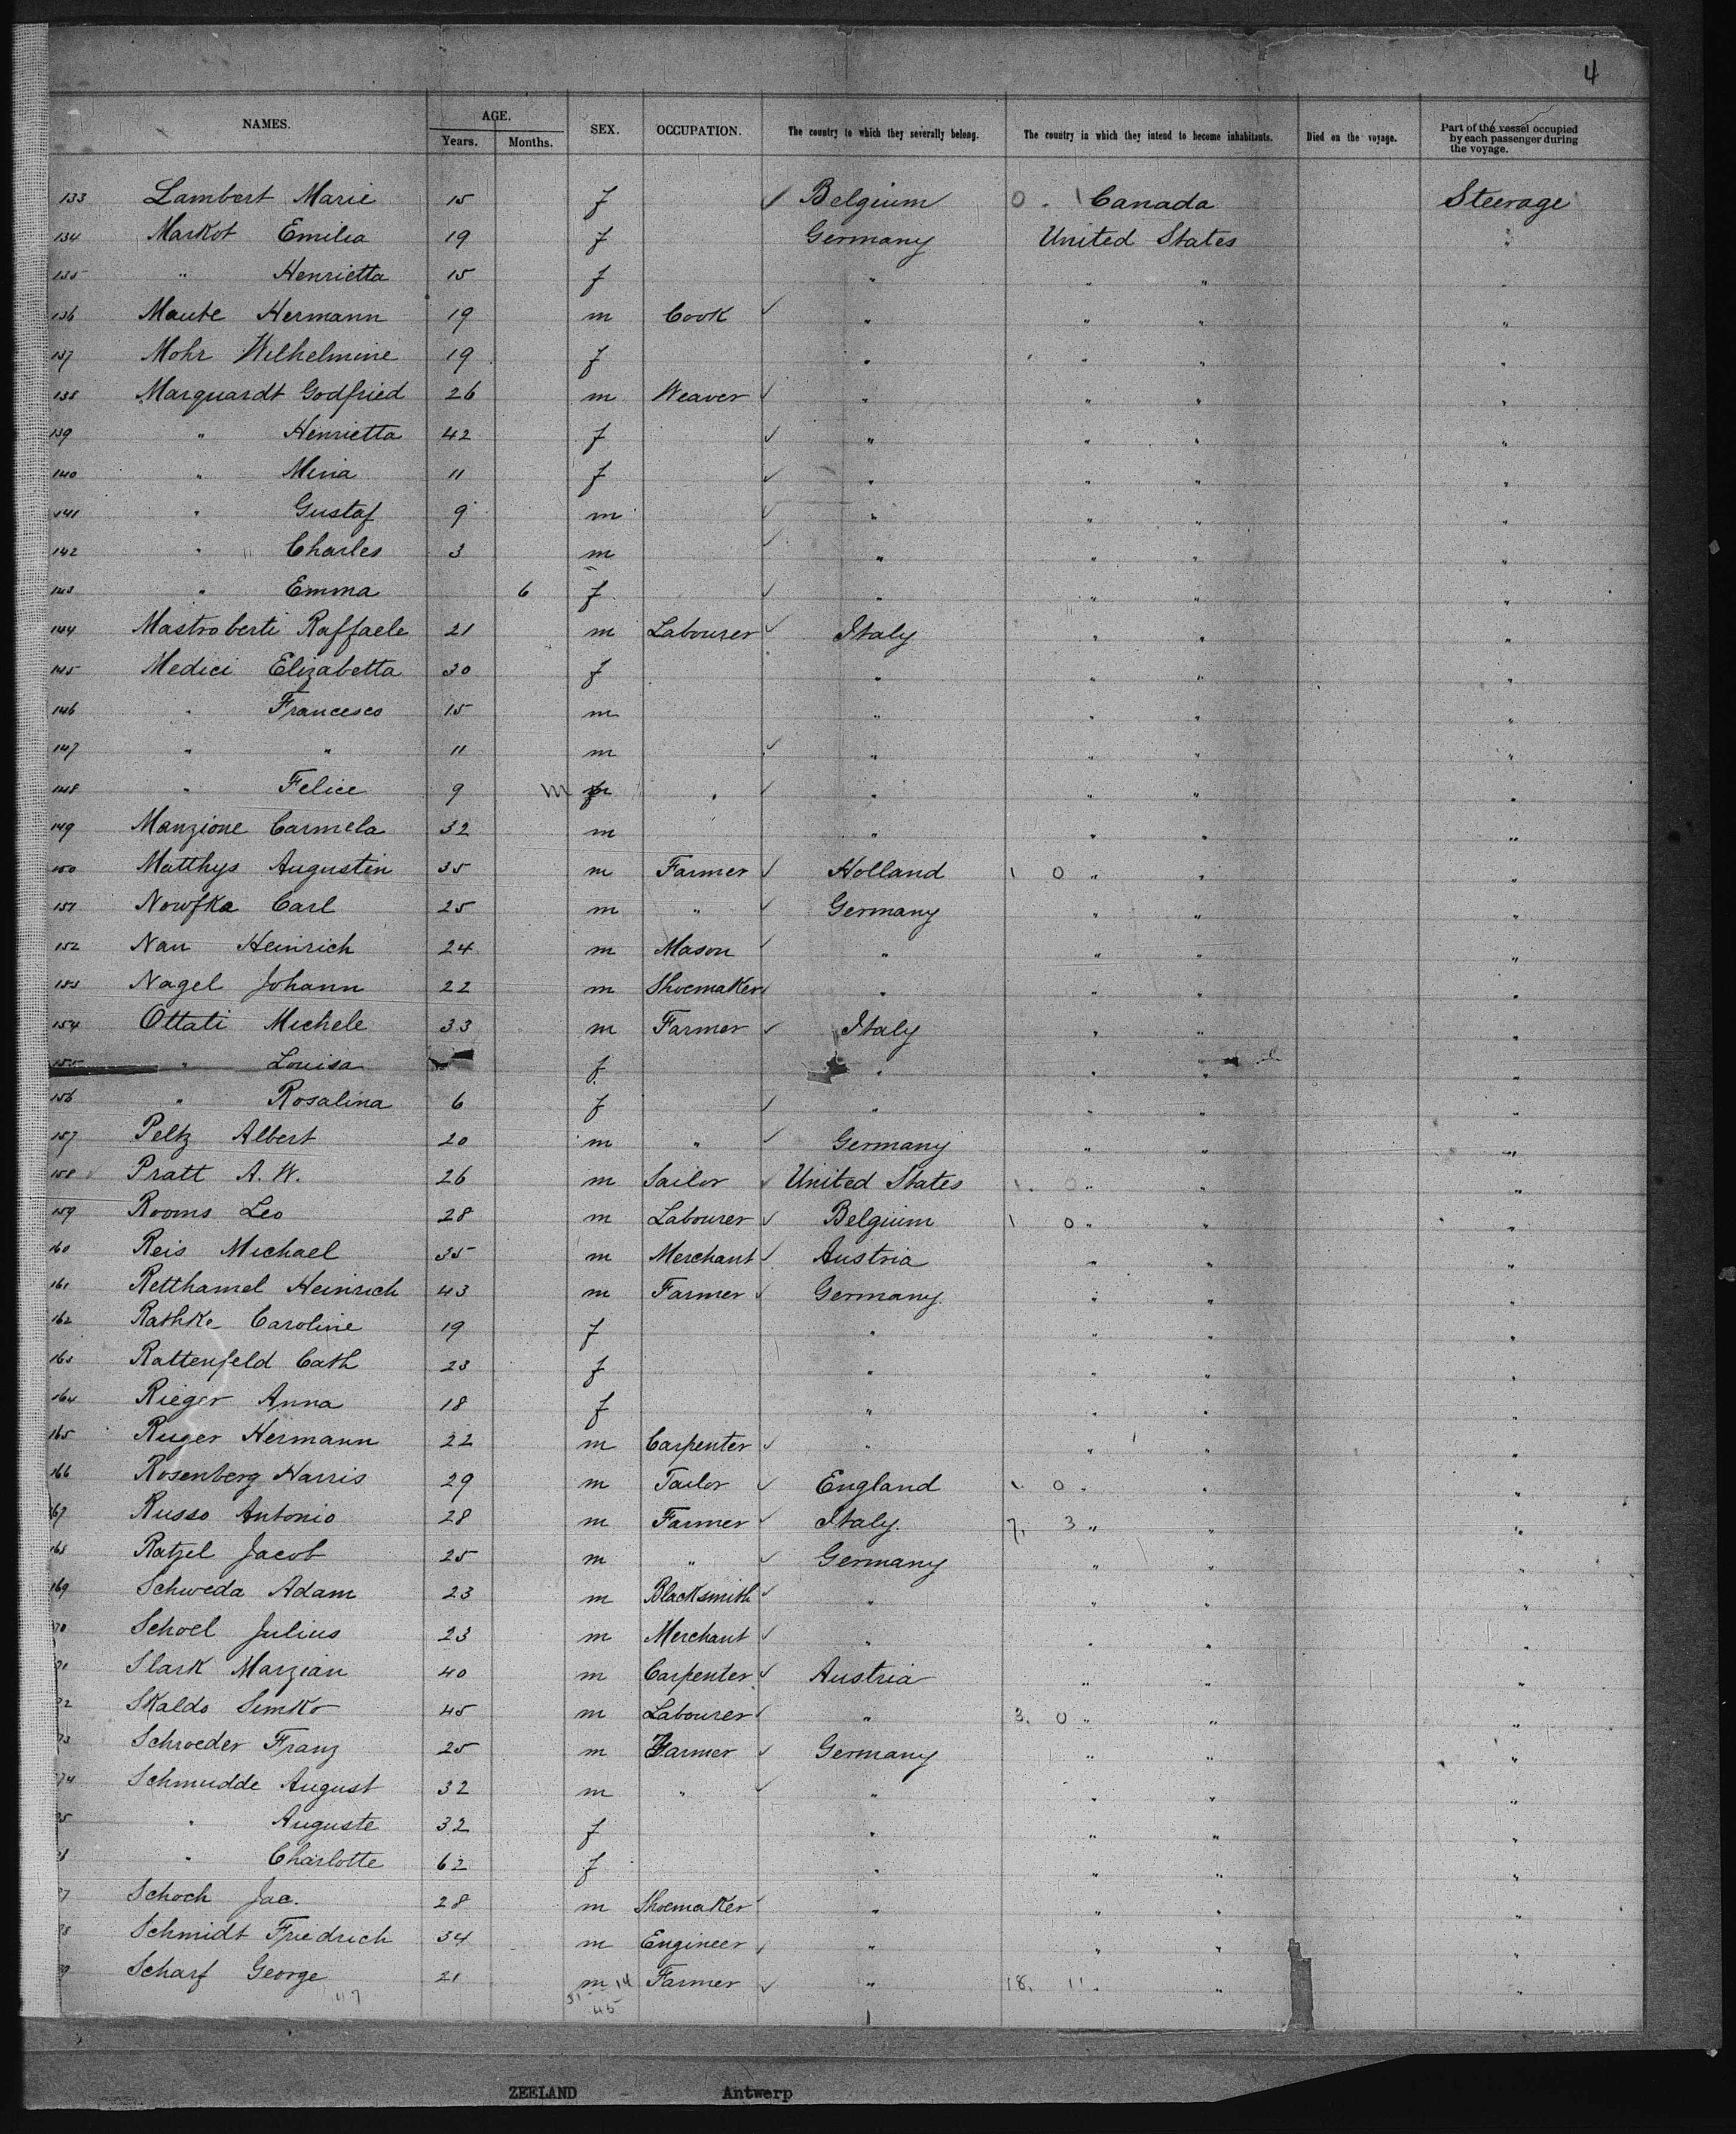 4
NAMES. AGE. SEX. OCCUPATION. The country to which they severally belong. The country in which they intend to become inhabitants. Died on the voyage. Part of the vessel occupied by each passenger during the voyage.
Years. Months.
133 Lambert Marie 15 f ✓ Belgium 0. 1 Canada Steerage
134 Markot Emilia 19 f Germany United States "
135 " Henrietta 15 f " " " "
136 Maute Hermann 19 m Cook ✓ " " " "
137 Mohr Wilhelmine 19 f " " " "
138 Marquardt Godfried 26 m Weaver ✓ " " " "
139 " Henrietta 42 f ✓ " " " "
140 " Mina 11 f ✓ " " " "
141 " Gustaf 9 m ✓ " " " "
142 " Charles 3 m ✓ " " " "
143 " Emma 6 f ✓ " " " "
144 Mastroberti Raffaele 21 m Labourer ✓ Italy " " "
145 Medici Elizabetta 30 f " " " "
146 " Francesco 15 m " " " "
147 " " 11 m ✓ " " " "
148 " Felice 9 m " ✓ " " " "
149 Manzione Carmela 32 m " " " "
150 Matthys Augustin 35 m Farmer ✓ Holland 1 0 " " "
151 Nowfka Carl 25 m " ✓ Germany " " "
152 Nau Heinrich 24 m Mason ✓ " " " "
153 Nagel Johann 22 m Shoemaker ✓ " " " "
154 Ottati Michele 33 m Farmer ✓ Italy " " "
155 " Louisa f " " " "
156 " Rosalina 6 f ✓ " " " "
157 Peltz Albert 20 m " ✓ Germany " " "
158 Pratt A. W. 26 m Sailor ✓ United States 1. 0 " " "
159 Rooms Leo 28 m Labourer ✓ Belgium 1 0 " " "
160 Reis Michael 35 m Merchant ✓ Austria " " "
161 Retthamel Heinrich 43 m Farmer ✓ Germany " " "
162 Rathke Caroline 19 f " " " "
163 Rattenfeld Cath 23 f " " " "
164 Rieger Anna 18 f " " " "
165 Ruger Hermann 22 m Carpenter ✓ " " " "
166 Rosenberg Harris 29 m Tailor ✓ England 1. 0 " " "
67 Russo Antonio 28 m Farmer ✓ Italy. 7. 3 " " "
168 Ratzel Jacob 25 m " ✓ Germany " " "
169 Schweda Adam 23 m Blacksmith ✓ " " " "
70 Schoel Julius 23 m Merchant ✓ " " " "
71 Slark Marzian 40 m Carpenter ✓ Austria " " "
72 Skaldo Simko 45 m Labourer ✓ " 3. 0 " " "
73 Schroeder Franz 25 m Farmer ✓ Germany " " "
74 Schmudde August 32 m " ✓ " " " "
75 " Auguste 32 f " " " "
" Charlotte 62 f " " " "
7 Schoch Jac. 28 m Shoemaker ✓ " " " "
8 Schmidt Friedrich 34 m Engineer ✓ " " " "
9 Scharf George 21 m 14 Farmer ✓ " 18. 11 " " "
47 31 45
ZEELAND - Antwerp